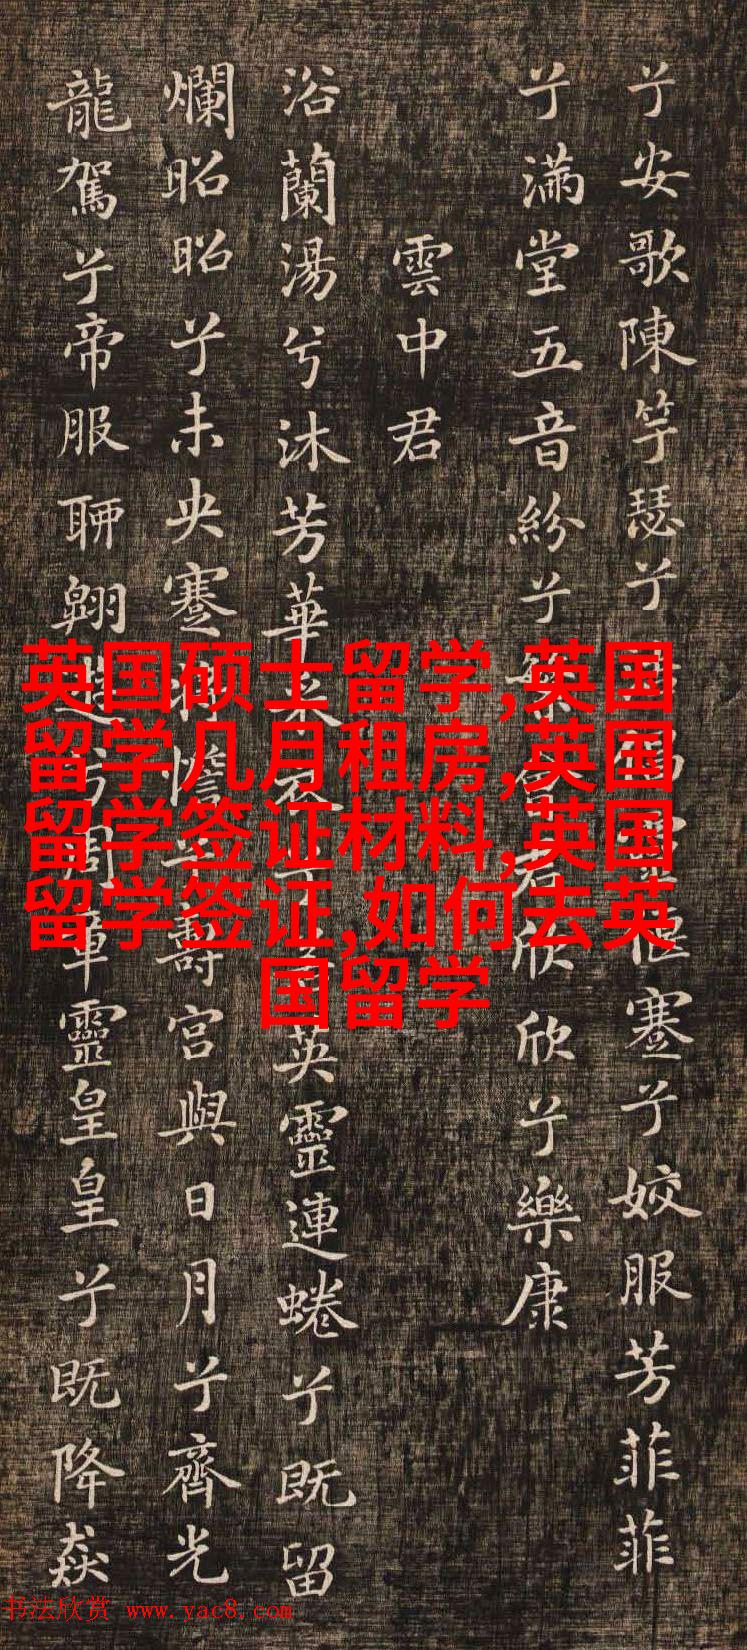 兮安歌陳竽瑟兮浩倡靈偃蹇兮姣服芳菲菲
兮滿堂五音紛兮繁會君欣欣兮樂康
雲中君
浴蘭湯兮沐芳華采衣兮若英靈連蜷兮既留
爛昭昭兮未央蹇將憺兮壽宮與日月兮齊光
龍駕兮帝服聊翱遊兮周章靈皇皇兮既降猋
英国硕士留学,英国
留学几月租房,英国
留学签证材料,英国
留学签证,如何去英
国留学
书法欣赏 www.yac8.com